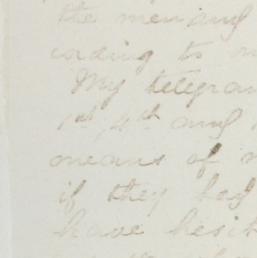 the men and
eading to
My telegra
1st, 4th and
means of
if they had
have hesit